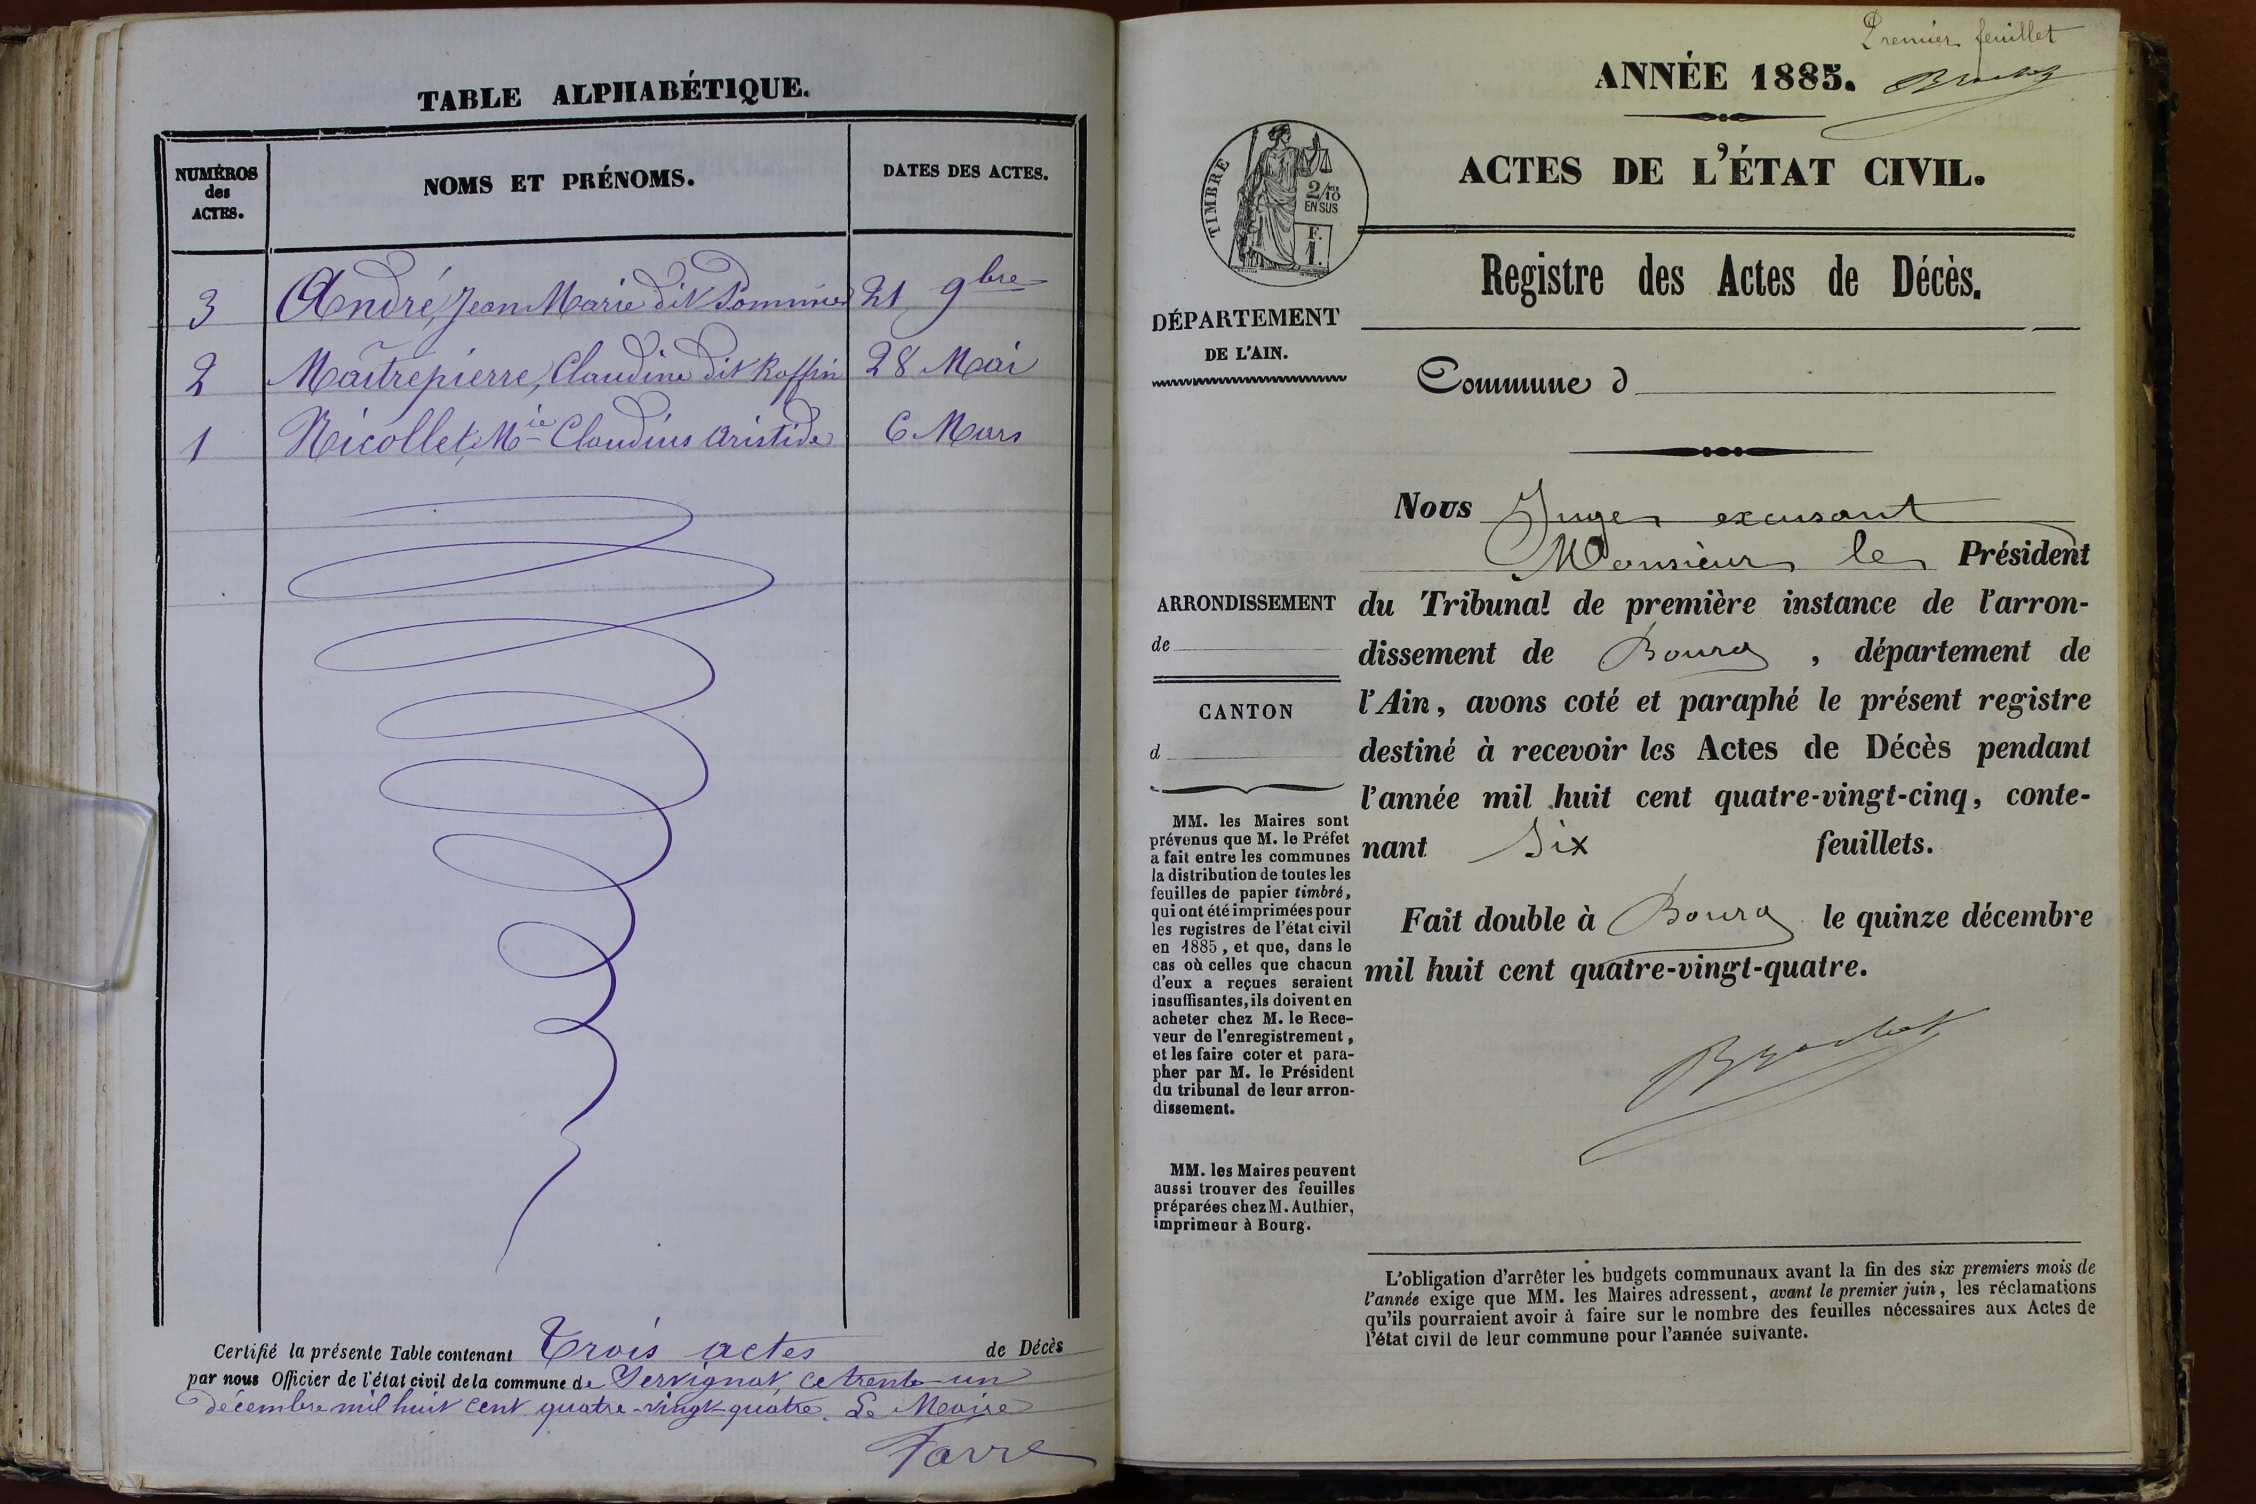 TABLE ALPHABÉTIQUE.
NUMÉROS
des
ACTES.
NOMS ET PRÉNOMS.
DATES DES ACTES.
3 André, Jean Marie dit Pommier 21 9bre
2 Maîtrepierre, Claudine dit Roffin 28 Mai
1 Nicollet, Mie Claudius Aristide 6 Mars
Certifié la présente Table contenant Trois actes de Décès
par nous Officier de l'état civil de la commune de Servignat, ce trente-un
décembre mil huit cent quatre-vingt-quatre. Le Maire
Favre
Premier feuillet
ANNÉE 1885.
TIMBRE
2/10
EN SUS
F.
1.
ACTES DE L'ÉTAT CIVIL.
Registre des Actes de Décès.
DÉPARTEMENT
DE L'AIN.
Commune d
ARRONDISSEMENT
de
CANTON
d
MM. les Maires sont
prévenus que M. le Préfet
a fait entre les communes
la distribution de toutes les
feuilles de papier timbré,
qui ont été imprimées pour
les registres de l'état civil
en 1885, et que, dans le
cas où celles que chacun
d'eux a reçues seraient
insuffisantes, ils doivent en
acheter chez M. le Rece-
veur de l'enregistrement,
et les faire coter et para-
pher par M. le Président
du tribunal de leur arron-
dissement.
MM. les Maires peuvent
aussi trouver des feuilles
préparées chez M. Authier,
imprimeur à Bourg.
Nous Juge excusant
Monsieur le Président
du Tribunal de première instance de l'arron-
dissement de Bourg, département de
l'Ain, avons coté et paraphé le présent registre
destiné à recevoir les Actes de Décès pendant
l'année mil huit cent quatre-vingt-cinq, conte-
nant Six feuillets.
Fait double à Bourg le quinze décembre
mil huit cent quatre-vingt-quatre.
L'obligation d'arrêter les budgets communaux avant la fin des six premiers mois de
l'année exige que MM. les Maires adressent, avant le premier juin, les réclamations
qu'ils pourraient avoir à faire sur le nombre des feuilles nécessaires aux Actes de
l'état civil de leur commune pour l'année suivante.